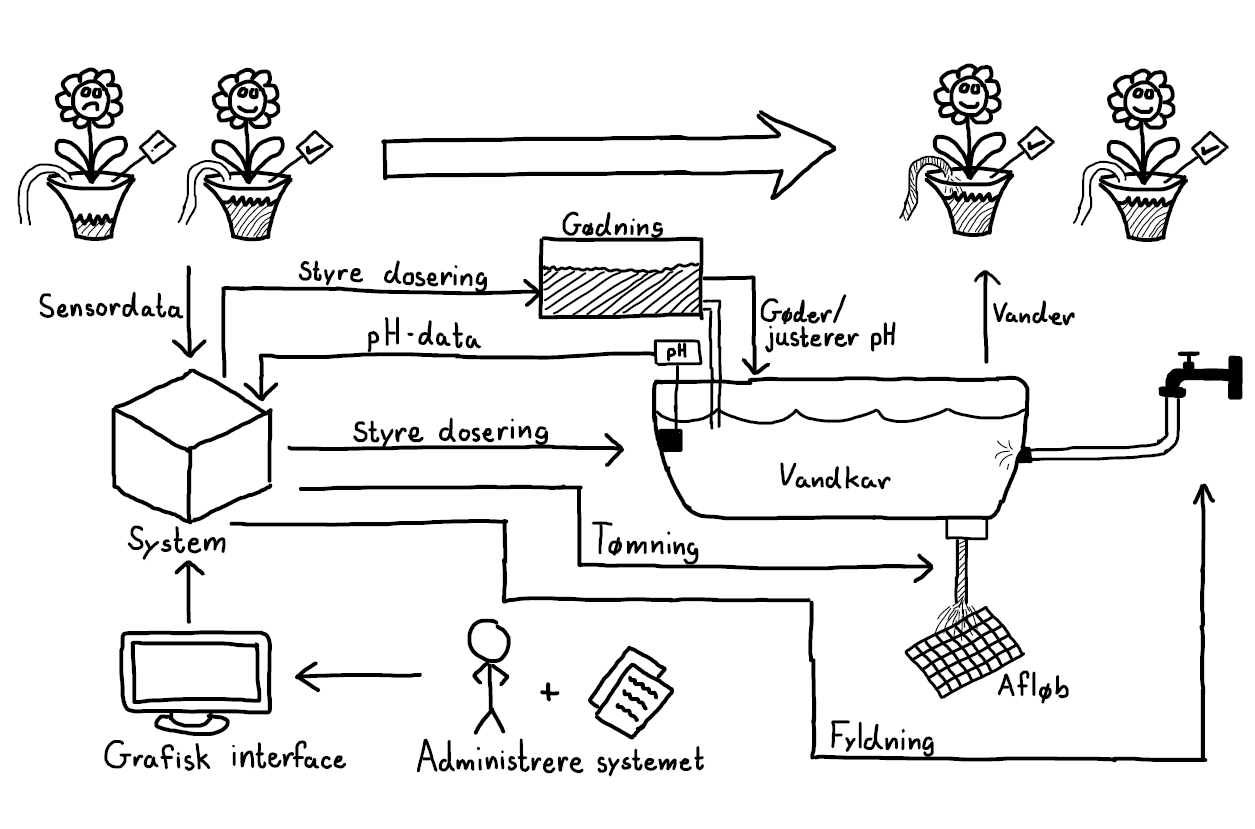 Gødning
Styre dosering
Sensordata
Gøder/
justerer pH
Vander
pH-data
pH
Styre dosering
Vandkar
System
Tømning
Afløb
Fyldning
Grafisk interface
+
Administrere systemet